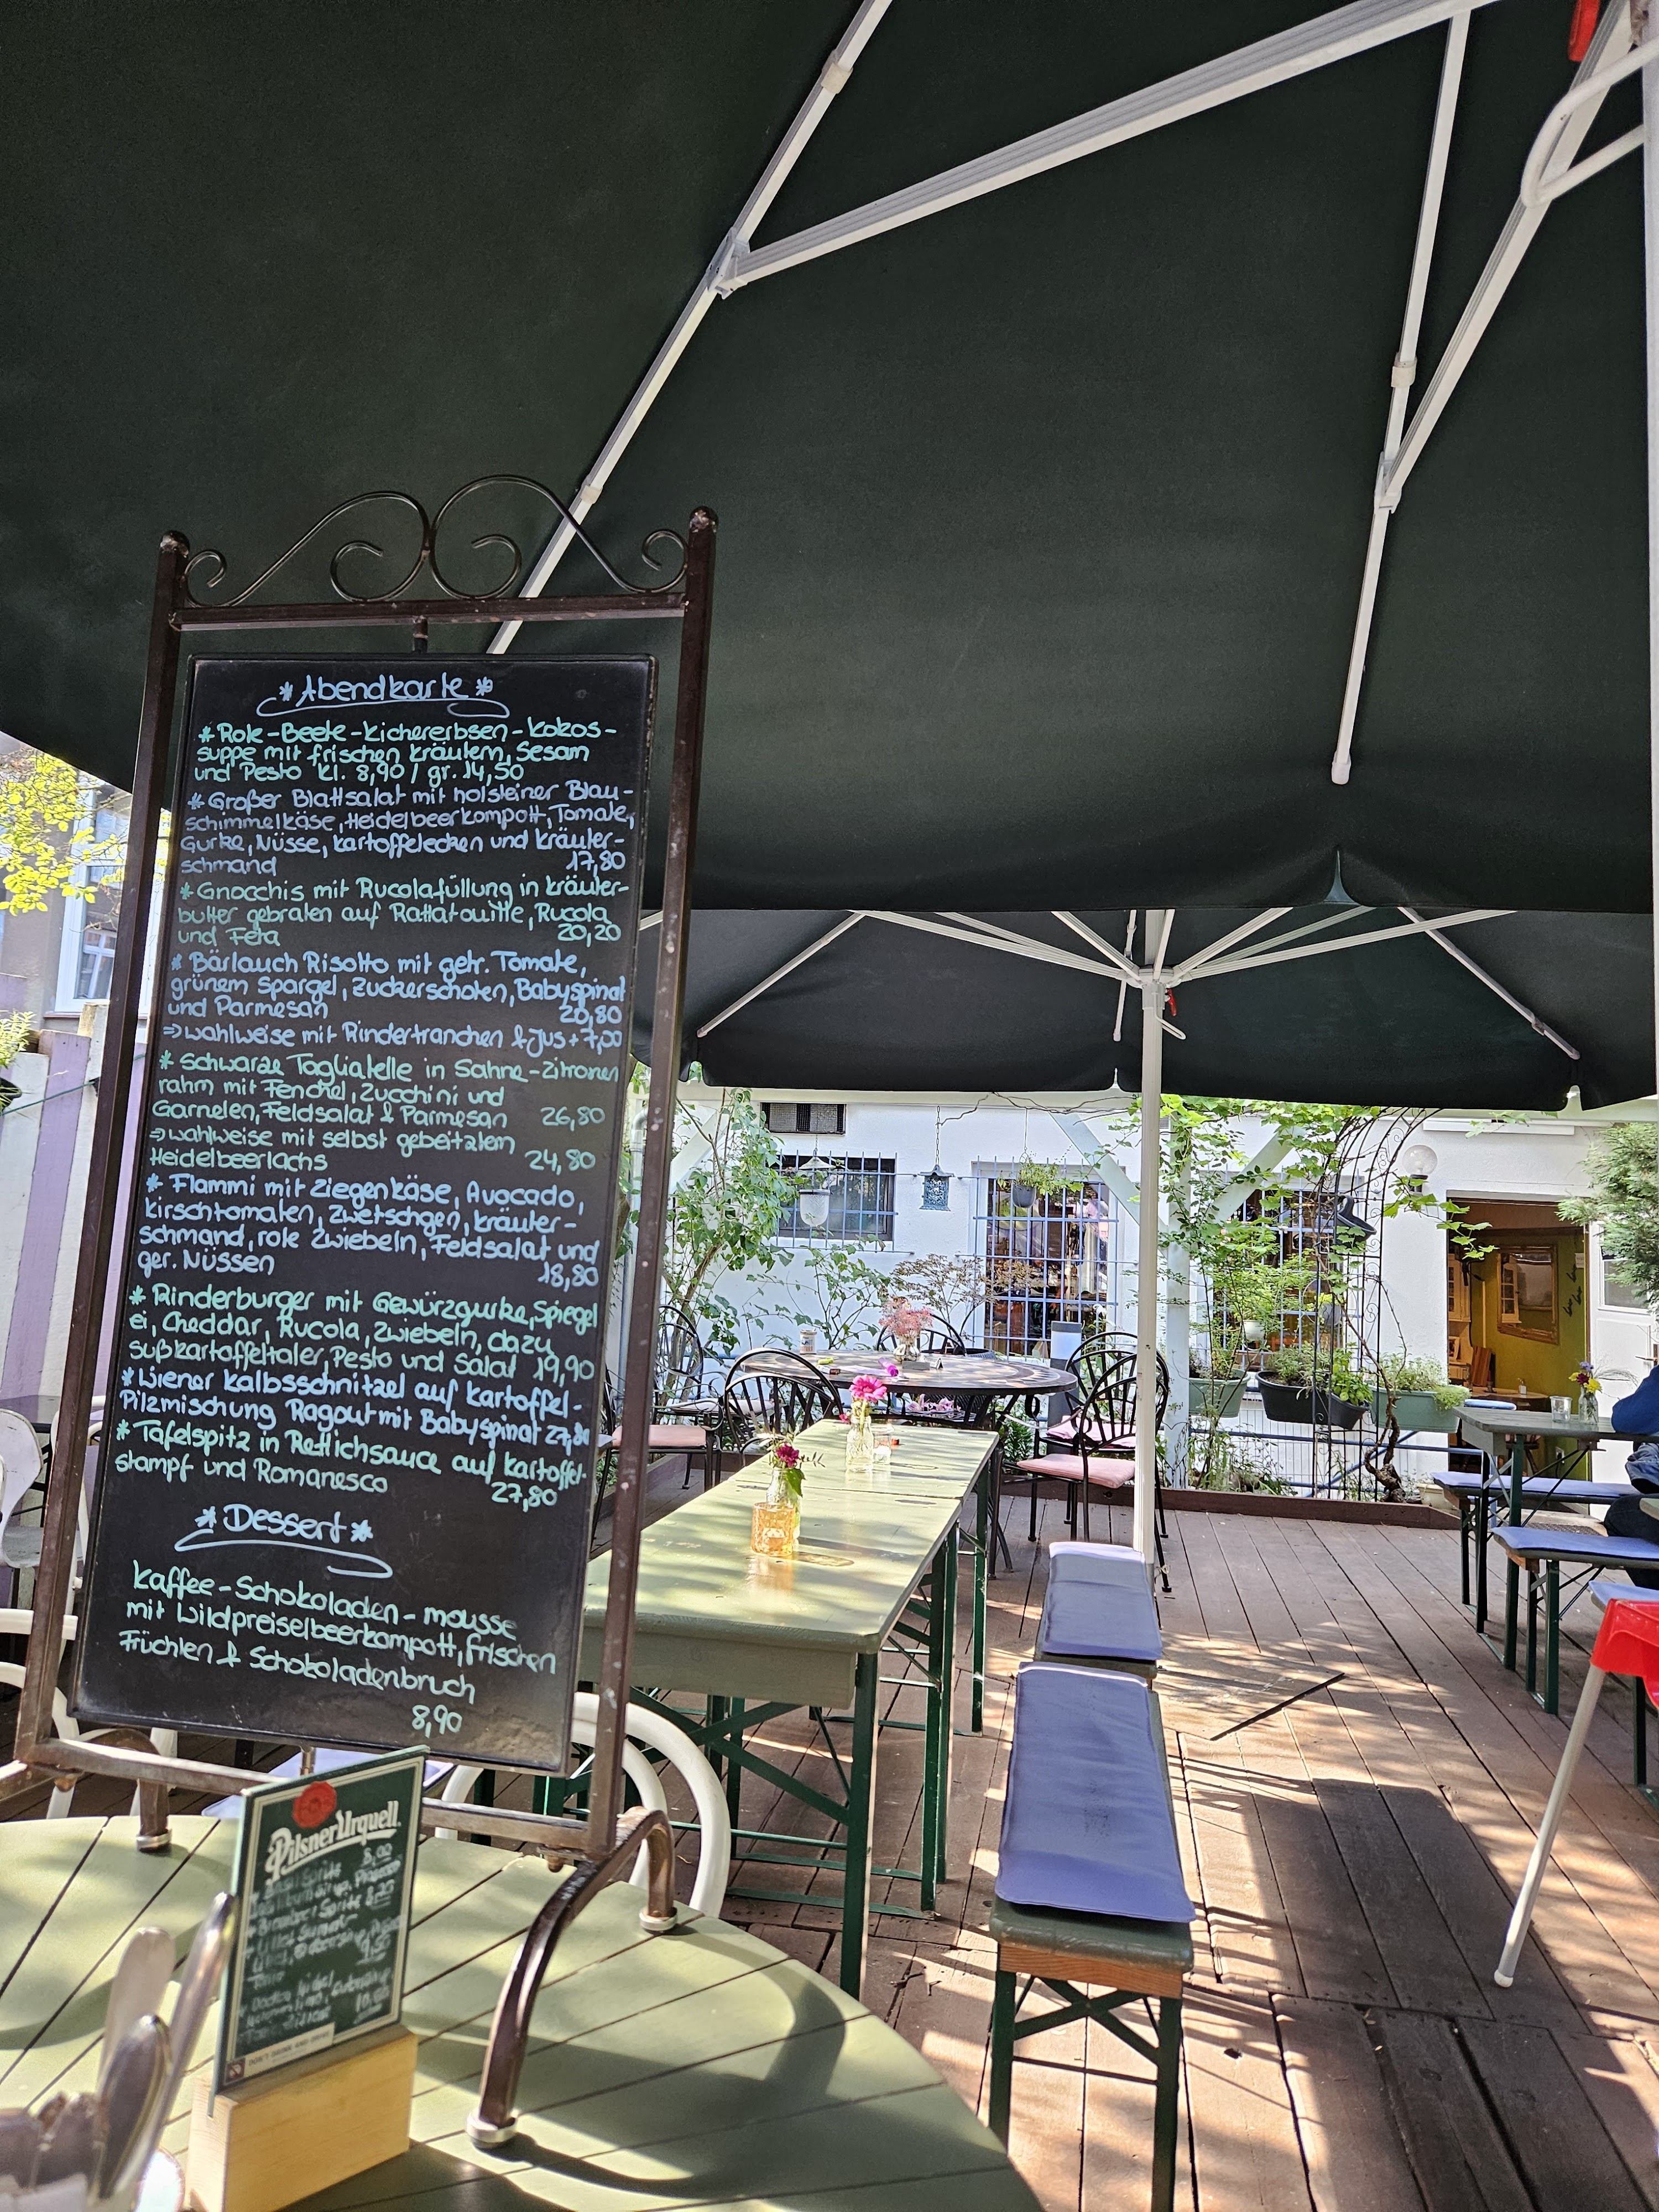 * Abendkarte *
* Rote-Beete-Kichererbsen-Kokos-
suppe mit frischen Kräutern, Sesam
und Pesto kl. 8,90 / gr. 14,50
* Großer Blattsalat mit holsteiner Blau-
schimmelkäse, Heidelbeerkompott, Tomate,
Gurke, Nüsse, Kartoffelecken und Kräuter-
schmand 17,80
* Gnocchis mit Rucolafüllung in Kräuter-
butter gebraten auf Rattatouille, Rucola
und Feta 20,20
* Bärlauch Risotto mit getr. Tomate,
grünem Spargel, Zuckerschoten, Babyspinat
und Parmesan 20,80
⇒ wahlweise mit Rindertranchen & Jus + 7,00
* Schwarze Tagliatelle in Sahne-Zitronen
rahm mit Fenchel, Zucchini und
Garnelen, Feldsalat & Parmesan 26,80
⇒ wahlweise mit selbst gebeiztem
Heidelbeerlachs 24,80
* Flammi mit Ziegenkäse, Avocado,
Kirschtomaten, Zwetschgen, Kräuter-
schmand, rote Zwiebeln, Feldsalat und
ger. Nüssen 18,80
* Rinderburger mit Gewürzgurke, Spiegel
ei, Cheddar, Rucola, Zwiebeln, dazu
Süßkartoffeltaler, Pesto und Salat 19,90
* Wiener Kalbsschnitzel auf Kartoffel-
Pilzmischung Ragout mit Babyspinat 27,80
* Tafelspitz in Rettichsauce auf Kartoffel-
stampf und Romanesco 27,80
* Dessert *
Kaffee-Schokoladen-mousse
mit Wildpreiselbeerkompott, frischen
Früchten & Schokoladenbruch
8,90
Pilsner Urquell